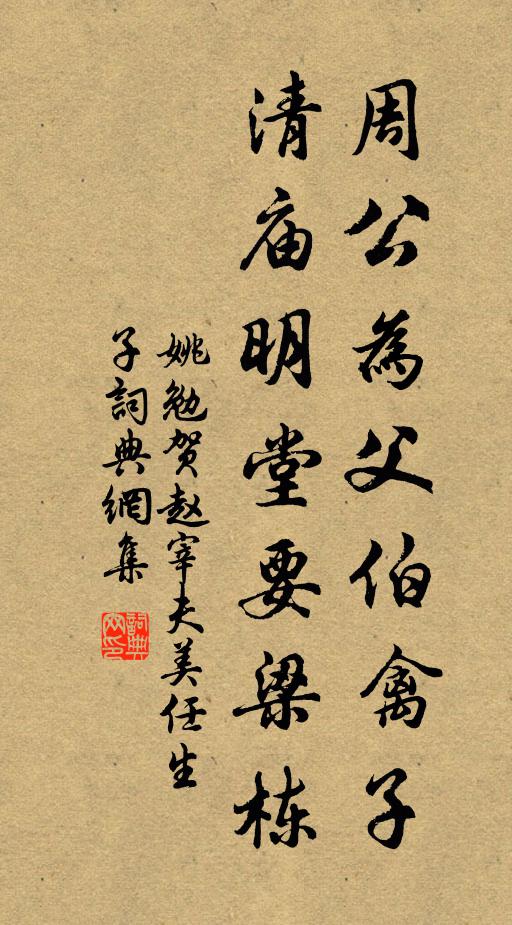 周公為父伯禽子
清庙明堂要梁栋
姚勉贺赵宰夫美任生
子詞典網集
詞典網印